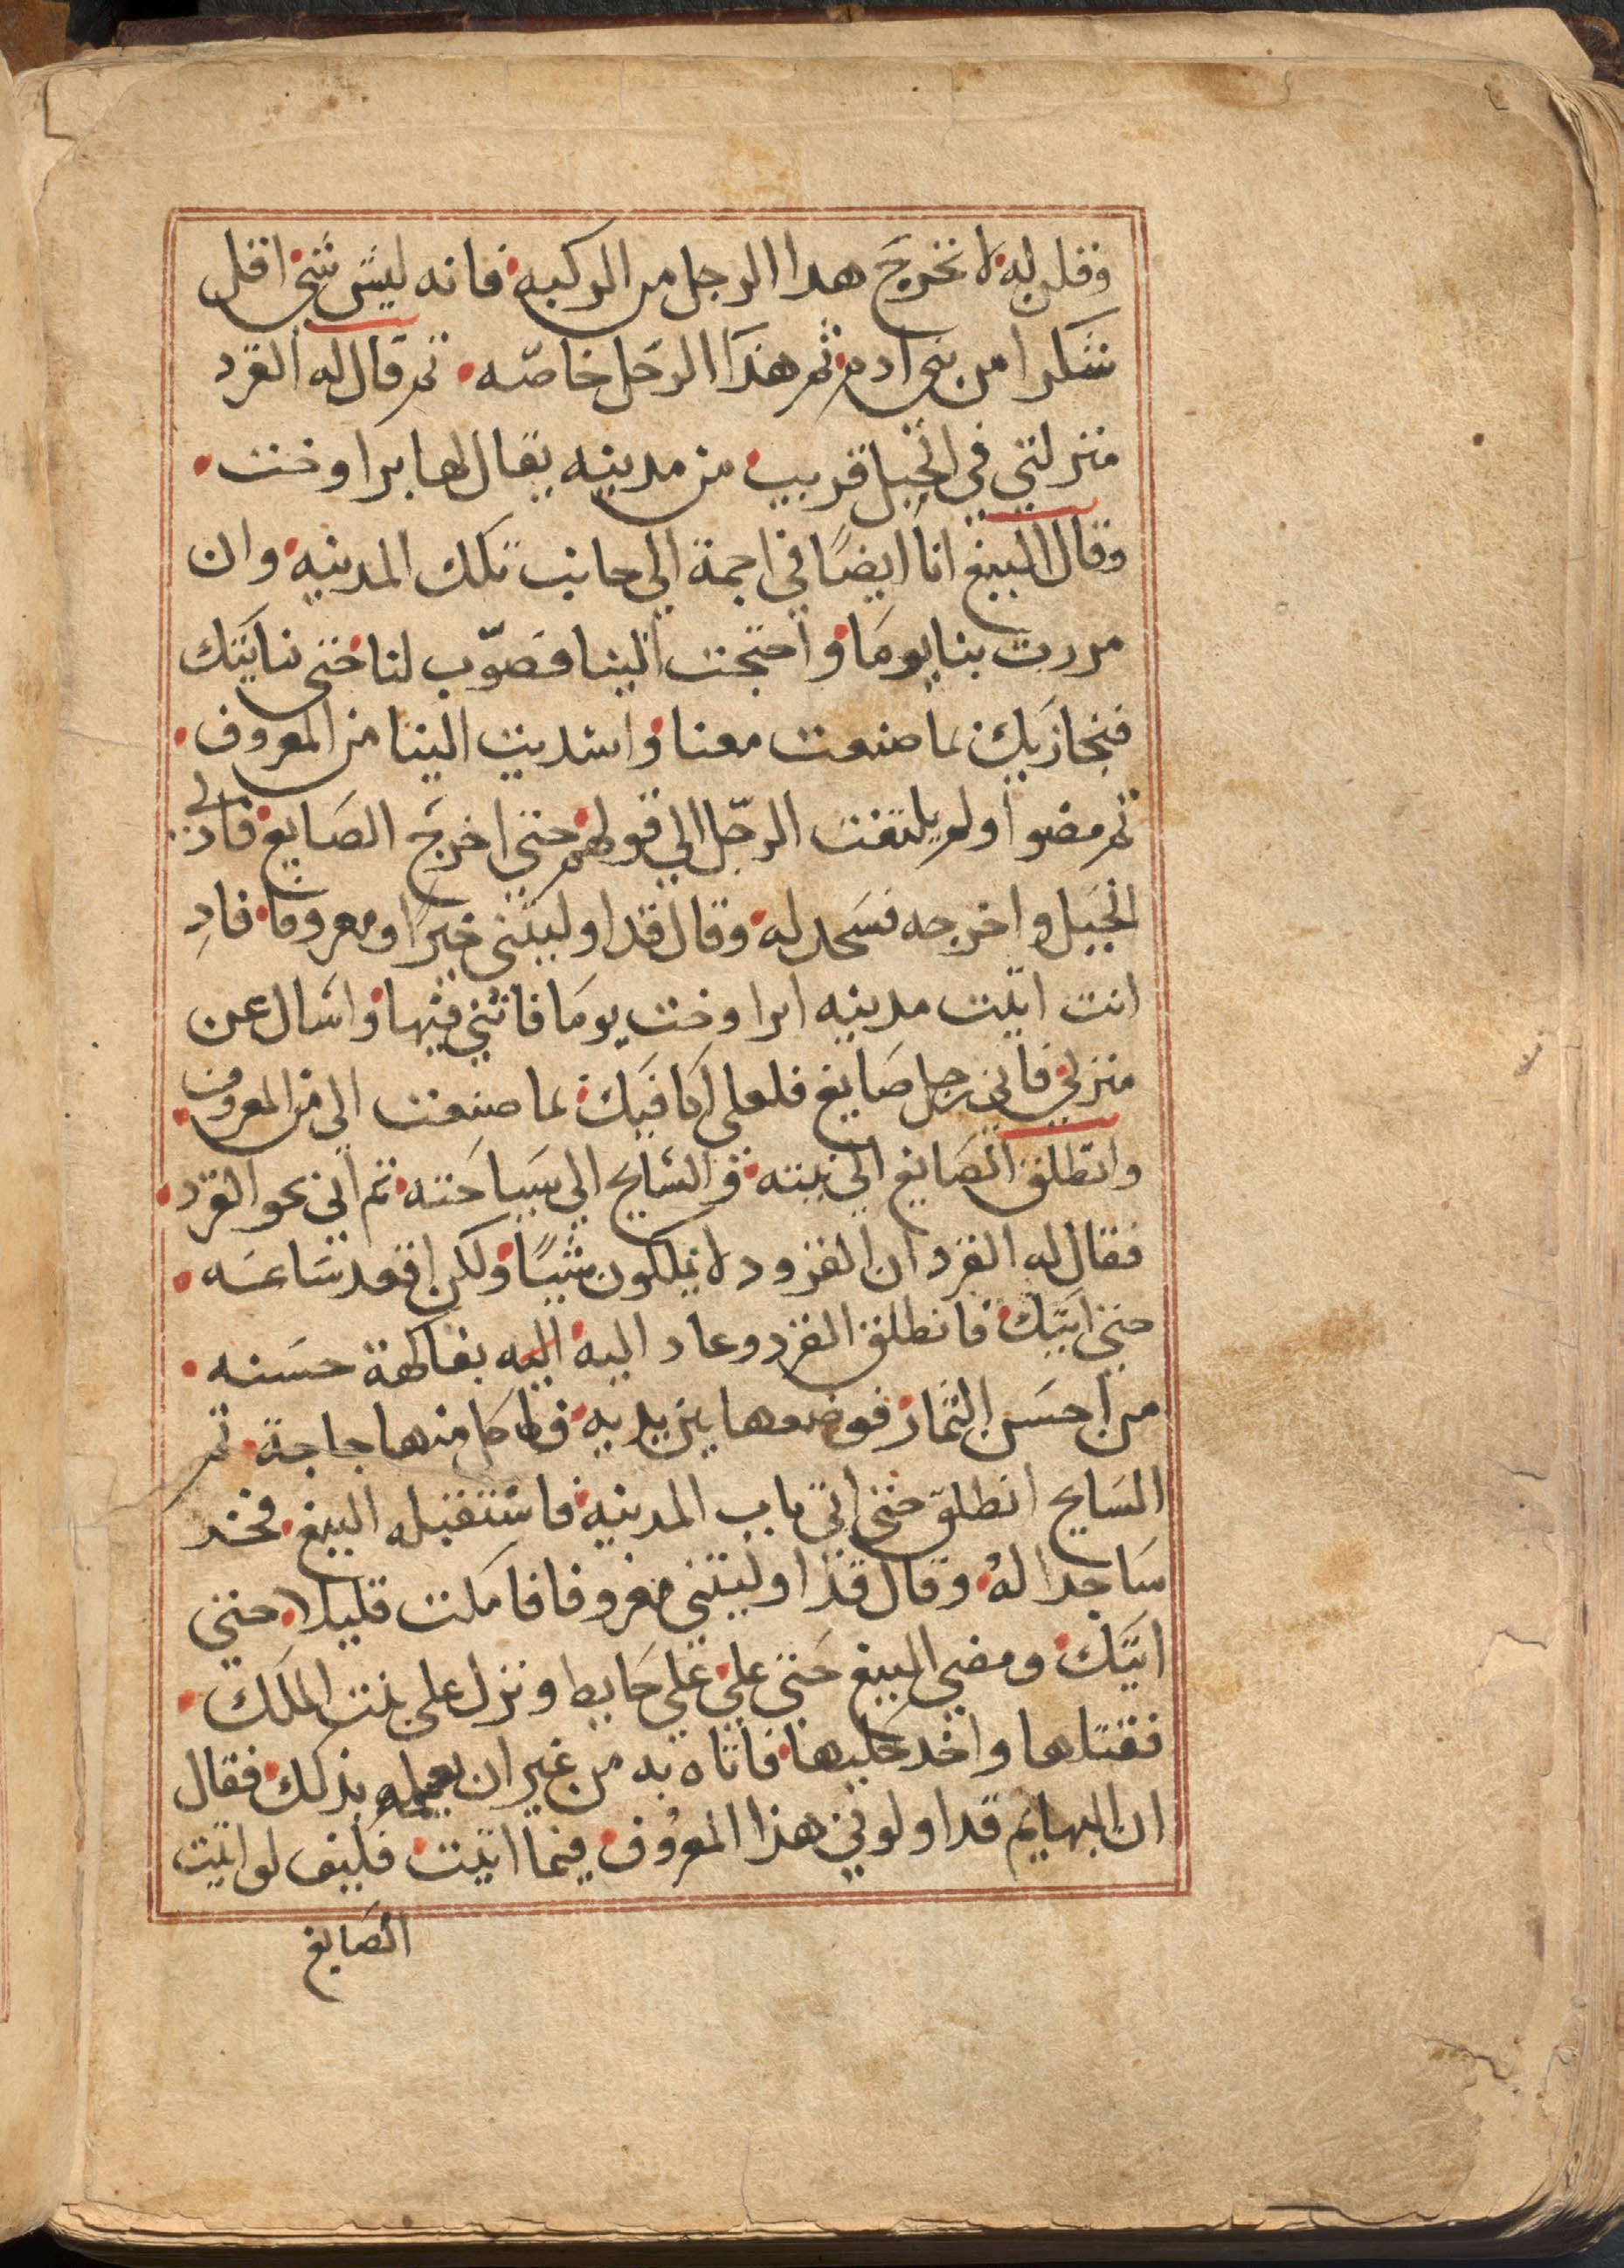 وقلن له لا تخرج هدا الرجل من الركيه فانه ليس شي اقل
شكرا من بني ادم ثم هذا الرجل خاصّه ثم قال له القرد
منزلتي في الجبل قريب من مدينه يقال لها براوخت
وقال الببغ انا ايضًا في اجمة الي جانب تلك المدينه وان
مررت بنا يومًا واحتجت الينا فصوّب لنا حتي نناتيك
فنجازيك بما صنعت معنا واسديت الينا من المعروف
ثم مضوا ولم يلتفت الرجل الي قولهم حتي اخرج الصايع فادلي
الحبل واخرجه فسجد له وقال قد اوليتني خيرًا ومعروفا فاد
انت اتيت مدينه ابراوخت يومًا فاتني فيها واسال عن
منزلي فاني رجل صايغ فلعلي اكافيك بما صنعت الي من المعروف
وانطلق الصايغ الي بيته والسايح الي سياحته ثم اتي نحو القرد
فقال له القرد ان القرود لا يملكون شيًا ولكن اقعد ساعه
حتي اتيك فانطلق القرد وعاد اليه اليه بفاكهة حسنه
من احسن الثمار فوضعها بين يديه فاكل منها حاجة ثم
السايح انطلق حتي اتي باب المدينه فاستقبله الببغ فخر
ساجدا له وقال قد اوليتني معروفا فامكت قليلا حتي
اتيك ومضي الببغ حتي علي علي حايط ونزل علي بنت الملك
فقتلها واخد حليها فاتاه به من غير ان يعلمه بذلك فقال
ان البهايم قد اولوني هذا المعروف فيما اتيت فكيف لو اتيت
الصايغ